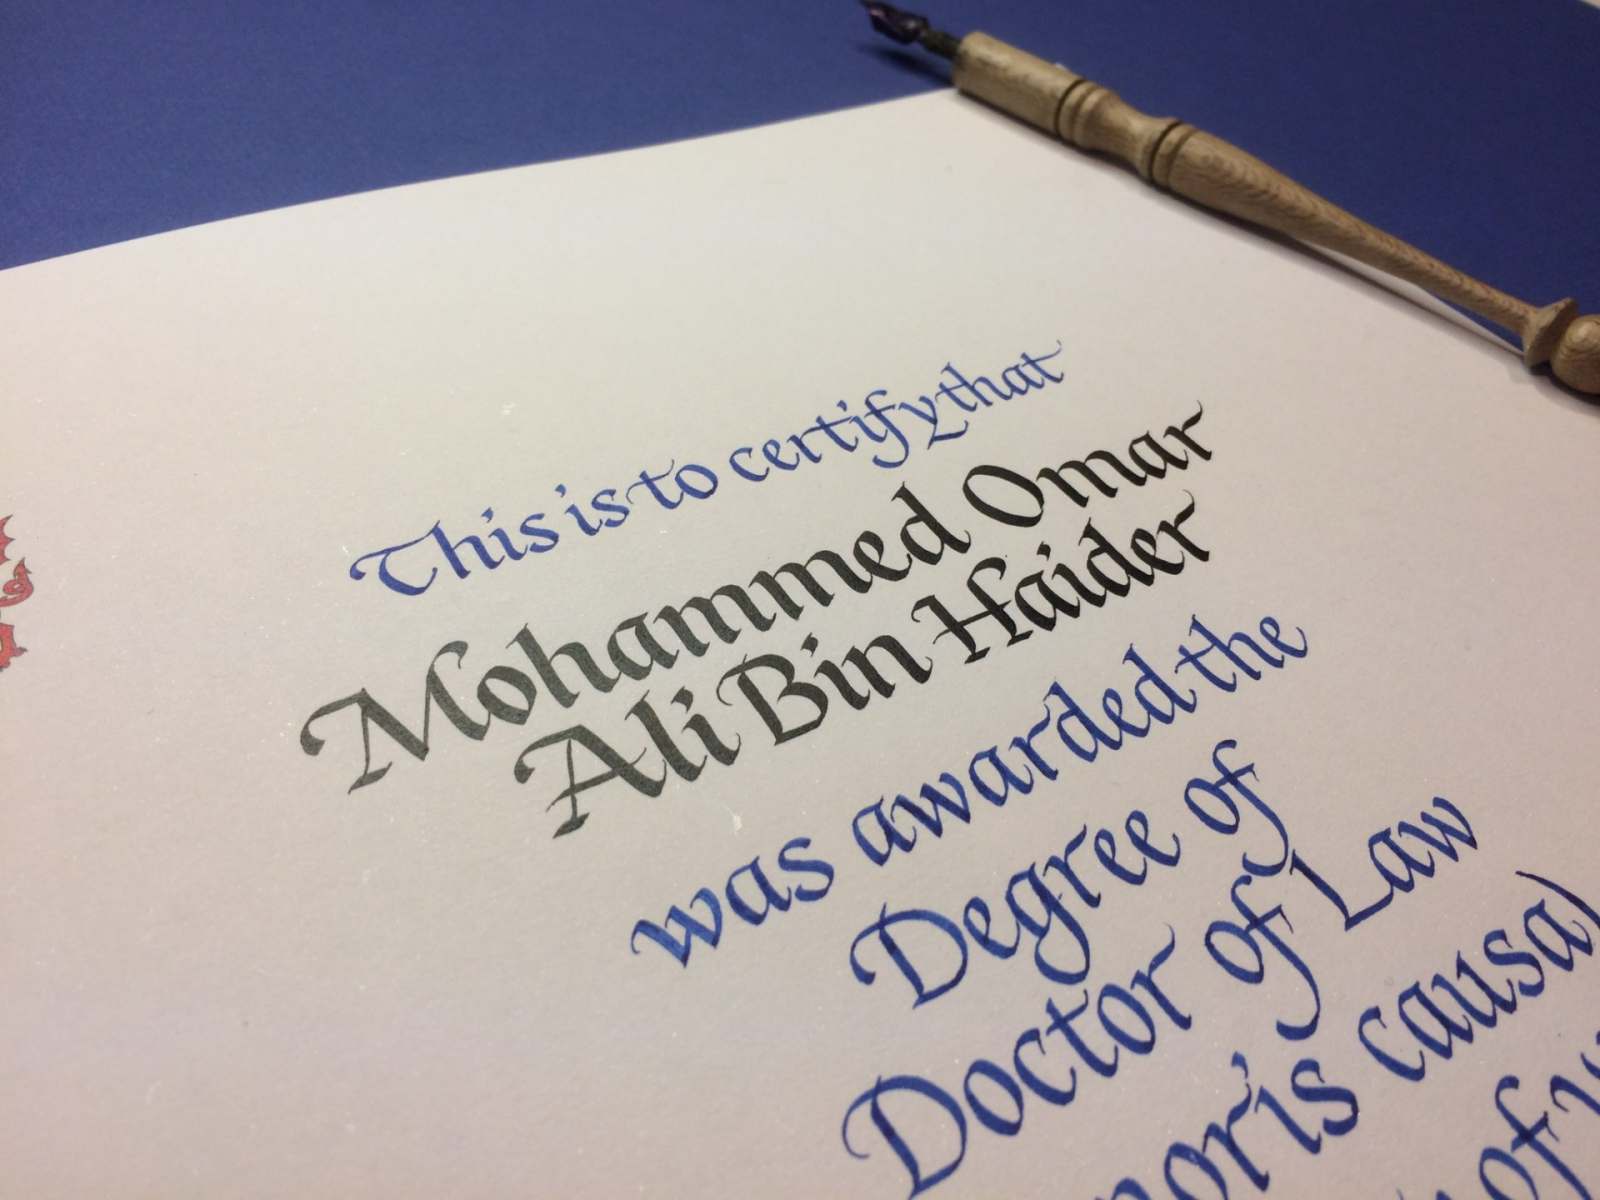 This is to certify that
Mohammed Omar
Ali Bin Haider
was awarded the
Degree of
Doctor of Law
causa)
of